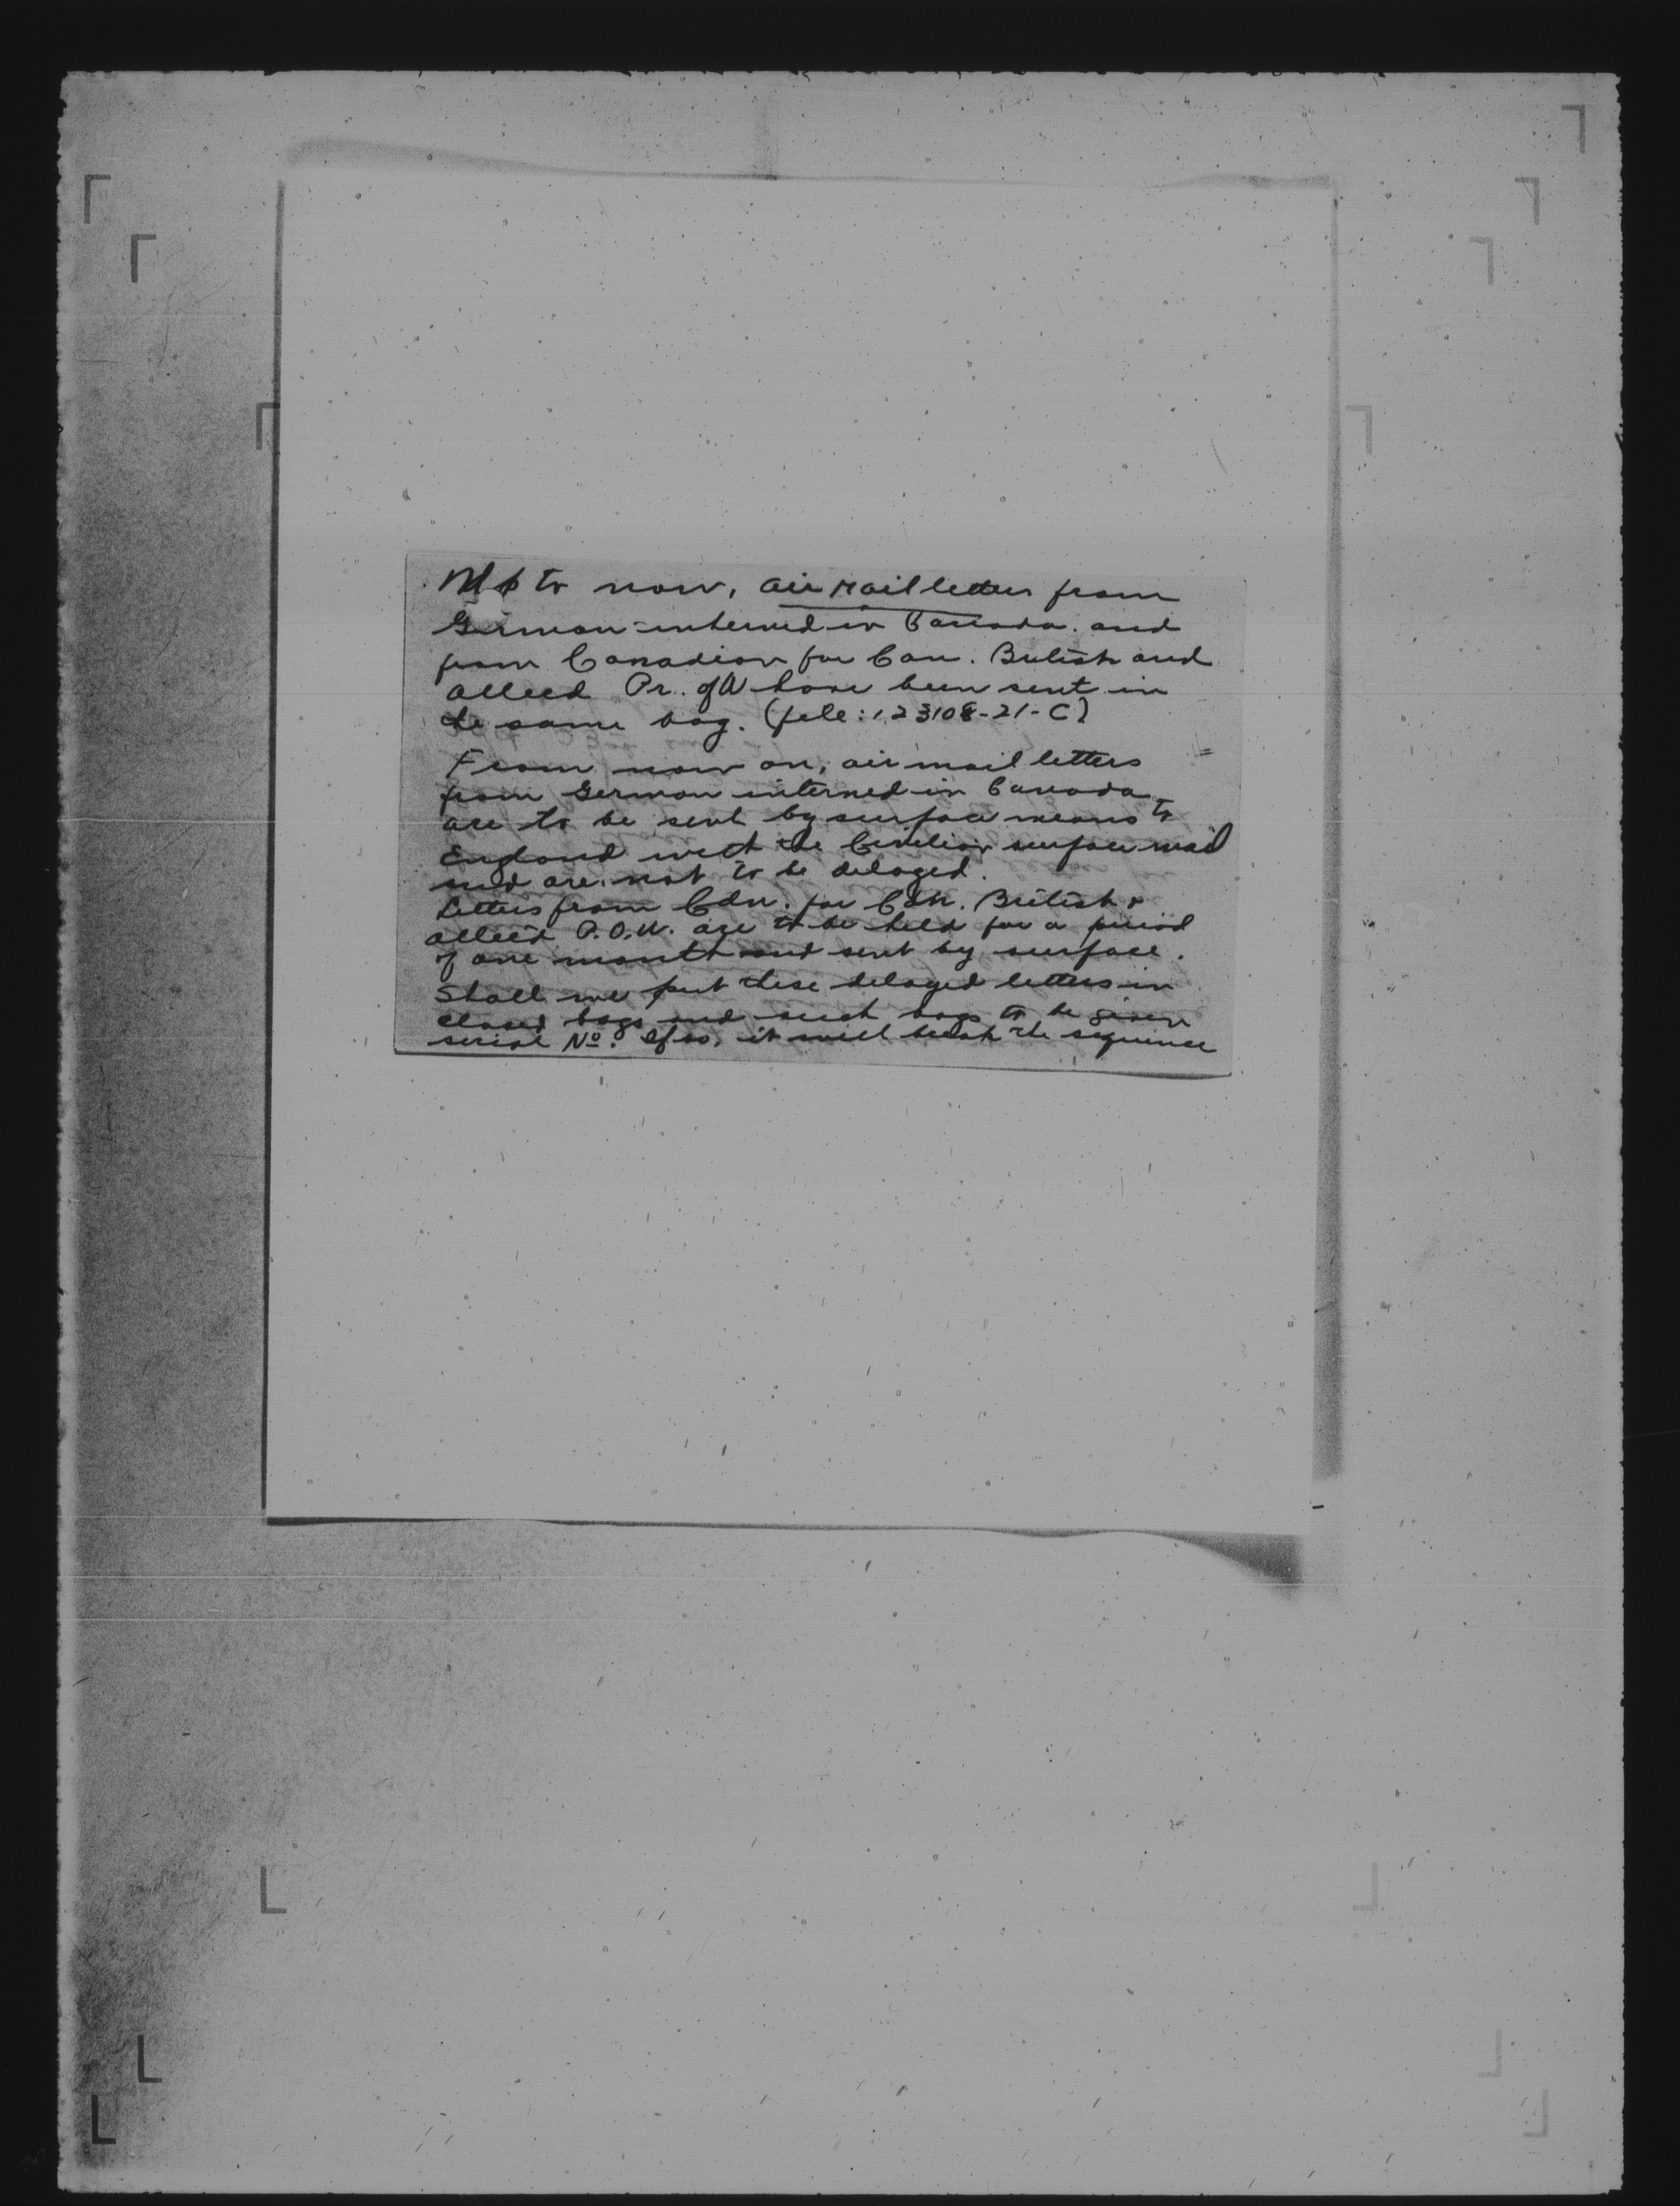 Up to now, air mail letters from
German interned in Canada. and
from Canadian for Can. British and
allied Pr. of W have been sent in
the same bag. (file: 123108-21-C)
From now on, air mail letters
from German interned in Canada
are to be sent by surface means to
England with the Civilian surface mail
and are not to be delayed.
Letters from Cdn. for Cdn. British &
allied P.O.W. are to be held for a period
of one month and sent by surface.
Shall we put these delayed letters in
closed bags and such bags to be given
serial No. If so, it will break the sequence